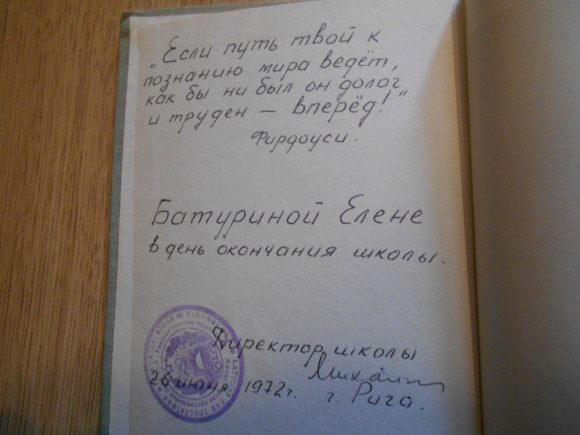 „Если путь твой к
познанию мира ведёт,
как бы ни был он долог
и труден — вперёд!"
Фирдоуси.
Батуриной Елене
в день окончания школы.
Директор школы
28 июня 1972г. г. Рига.